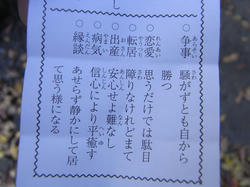 し
争事 騒がずとも自から
勝つ
恋愛 思うだけでは駄目
転居 障りなけれどまて
出産 安心せよ難なし
病気 信心により平癒す
縁談 あせらず静かにして居
て思う様になる